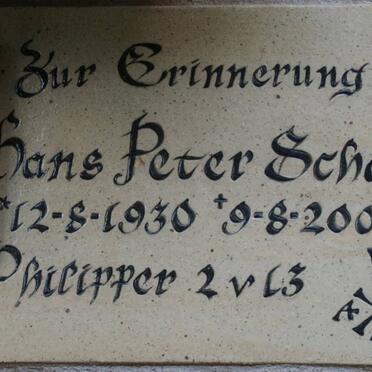 Zur Erinnerung
Hans Peter Sch
*12-8-1930 †9-8-200
Philipper 2 v 13
A